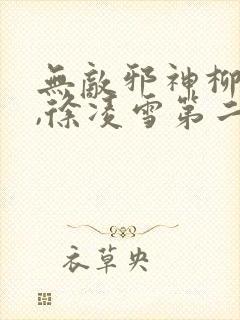 無敵邪神柳
,徐凌雪第二
衣草央